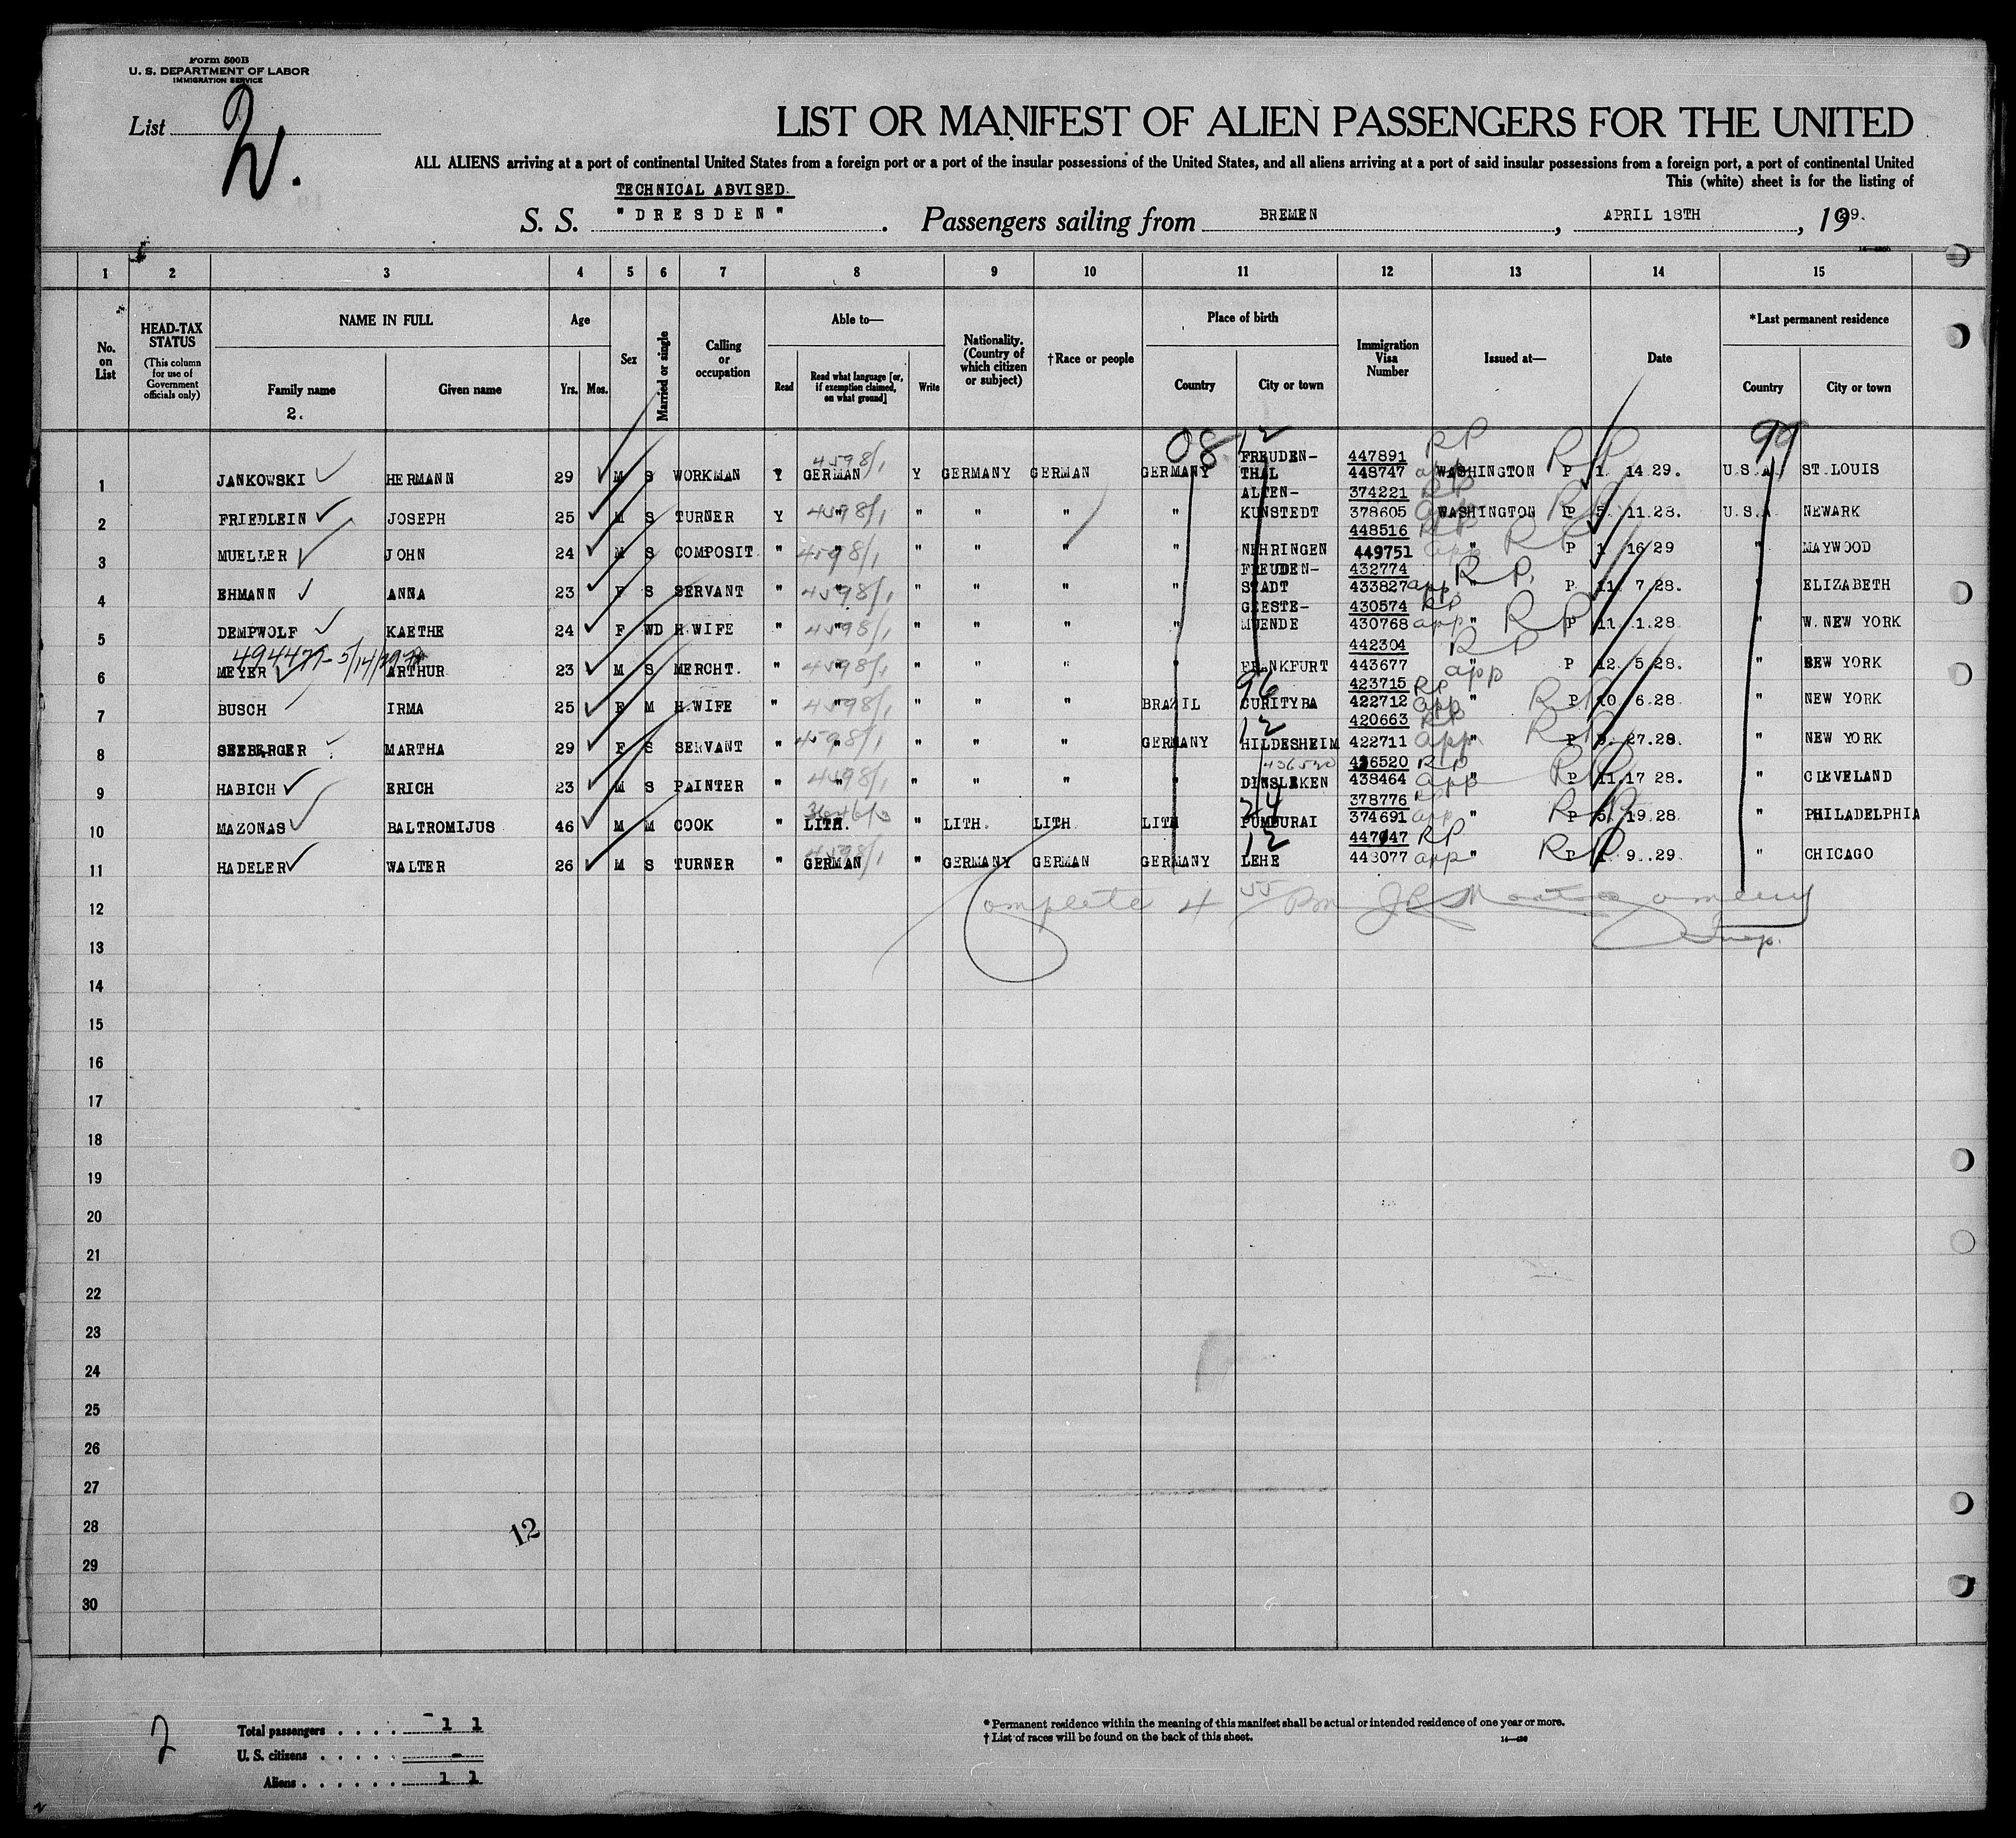 Form 500B
U. S. DEPARTMENT OF LABOR
IMMIGRATION SERVICE
List 2.
LIST OR MANIFEST OF ALIEN PASSENGERS FOR THE UNITED
ALL ALIENS arriving at a port of continental United States from a foreign port or a port of the insular possessions of the United States, and all aliens arriving at a port of said insular possessions from a foreign port, a port of continental United
This (white) sheet is for the listing of
TECHNICAL ABVISED.
S. S. "DRESDEN". Passengers sailing from BREMEN, APRIL 18TH, 1929.
1 2 3 4 5 6 7 8 9 10 11 12 13 14 15
No. on List
HEAD-TAX STATUS (This column for use of Government officials only)
NAME IN FULL
Family name
2.
Given name
Age
Yrs. Mos.
Sex
Married or single
Calling or occupation
Able to—
Read
Read what language [or, if exemption claimed, on what ground]
Write
Nationality. (Country of which citizen or subject)
†Race or people
Place of birth
Country
City or town
Immigration Visa Number
Issued at—
Date
*Last permanent residence
Country
City or town
08 12 99
1 JANKOWSKI HERMANN 29 M S WORKMAN Y GERMAN 4598/1 Y GERMANY GERMAN GERMANY FREUDEN-THAL 447891 RP 448747 app WASHINGTON P RP 1. 14 29. U.S.A. ST.LOUIS
2 FRIEDLEIN JOSEPH 25 M S TURNER Y " 4598/1 " " " " ALTEN-KUNSTEDT 374221 RP 378605 app WASHINGTON P RP 5. 11.28. U.S.A. NEWARK
3 MUELLER JOHN 24 M S COMPOSIT. " " 4598/1 " " " " NEHRINGEN 448516 RP 449751 app " P RP 1. 16 29 " MAYWOOD
4 EHMANN ANNA 23 F S SERVANT " " 4598/1 " " " " FREUDEN-STADT 432774 RP. 433827 app " P 11. 7.28. " ELIZABETH
5 DEMPWOLF KAETHE 24 F WD H.WIFE " " 4598/1 " " " " GEESTE-MUENDE 430574 RP 430768 app " P RP 11. 1.28. " W.NEW YORK
494479-5/14/
6 MEYER ARTHUR 23 M S MERCHT. " " 4598/1 " " " " FRANKFURT 442304 RP 443677 app P 12. 5.28. " NEW YORK
96
7 BUSCH IRMA 25 F M H.WIFE " " 4598/1 " " " BRAZIL CURITYBA 423715 RP 422712 app " P RP 10. 6.28 " NEW YORK
12
8 SEEBERGER MARTHA 29 F S SERVANT " " 4598/1 " " " GERMANY HILDESHEIM 420663 RP 422711 app " P RP 9. 27.28. " NEW YORK
436520
9 HABICH ERICH 23 M S PAINTER " " 4598/1 " " " " DINSLEKEN 436520 RP 438464 app " P RP 11.17 28. " CLEVELAND
24
10 MAZONAS BALTROMIJUS 46 M M COOK " LITH. " LITH. LITH LITH PUMPURAI 378776 RP 374691 app " P RP 5. 19.28. " PHILADELPHIA
12
11 HADELER WALTER 26 M S TURNER " GERMAN 4598/1 " GERMANY GERMAN GERMANY LEHE 447047 RP 448077 app " P RP 1. 9..29. " CHICAGO
12 Complete 4 55 Pm J R Montgomery
Insp.
13
14
15
16
17
18
19
20
21
22
23
24
25
26
27
28
12
29
30
2
Total passengers . . . . 11
U. S. citizens . . . . . -
Aliens . . . . . . 11
* Permanent residence within the meaning of this manifest shall be actual or intended residence of one year or more.
† List of races will be found on the back of this sheet.